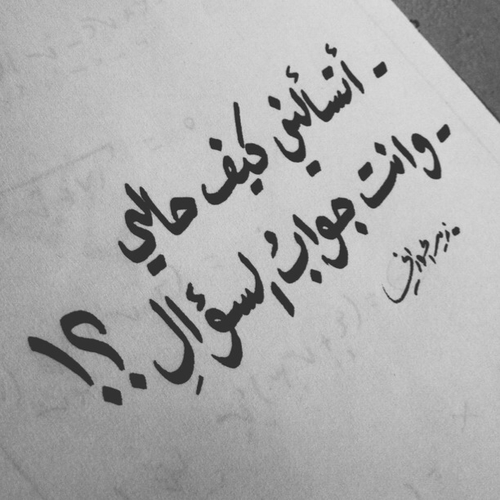 - أتسأليني كيف حالي
- وانت جوابُ السؤالِ ..؟!